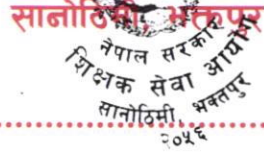 सानोठिमी, भक्तपुर
नेपाल सरकार
शिक्षक सेवा आयोग
सानोठिमी, भक्तपुर
२०५६